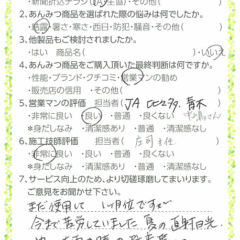 ・新聞折込チラシ・JA・生協・その他(
2.あんみつ商品を選ばれた際の悩みは何でしたか。
・結露・暑さ・寒さ・西日・防犯・騒音・その他(
3.他製品もご検討されましたか。
・はい 商品名( )・いいえ
4.あんみつ商品をご購入頂いた最終判断は何ですか。
・性能・ブランド・クチコミ・営業マンの勧め
・販売店の信用・その他( )
5.営業マンの評価 担当者( JA
・非常に良い ・良い ・普通 ・良くない
●身だしなみ ・清潔感あり ・普通 ・清潔感なし
6.施工技師評価 担当者(
・非常に良い ・良い ・普通 ・良くない
●身だしなみ ・清潔感あり ・普通 ・清潔感なし
7.サービス向上のため、より切磋琢磨してまいります。
ご意見をお聞かせ下さい。
まだ使用して 1ヶ月位ですが
今まで苦労していました 夏の直射日光